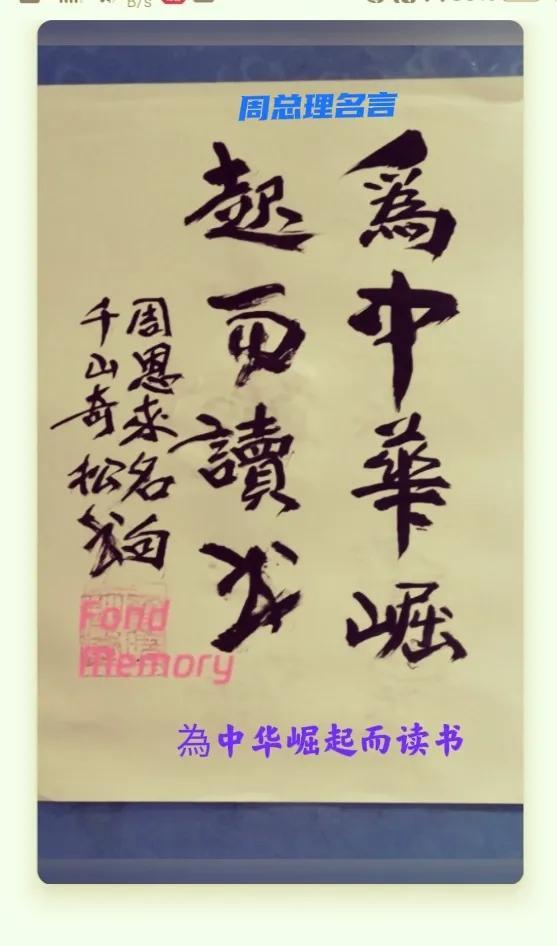 B/s
周总理名言
為中華崛
起而讀书
周恩来名句
千山奇松书
Fond
Memory
為中华崛起而读书